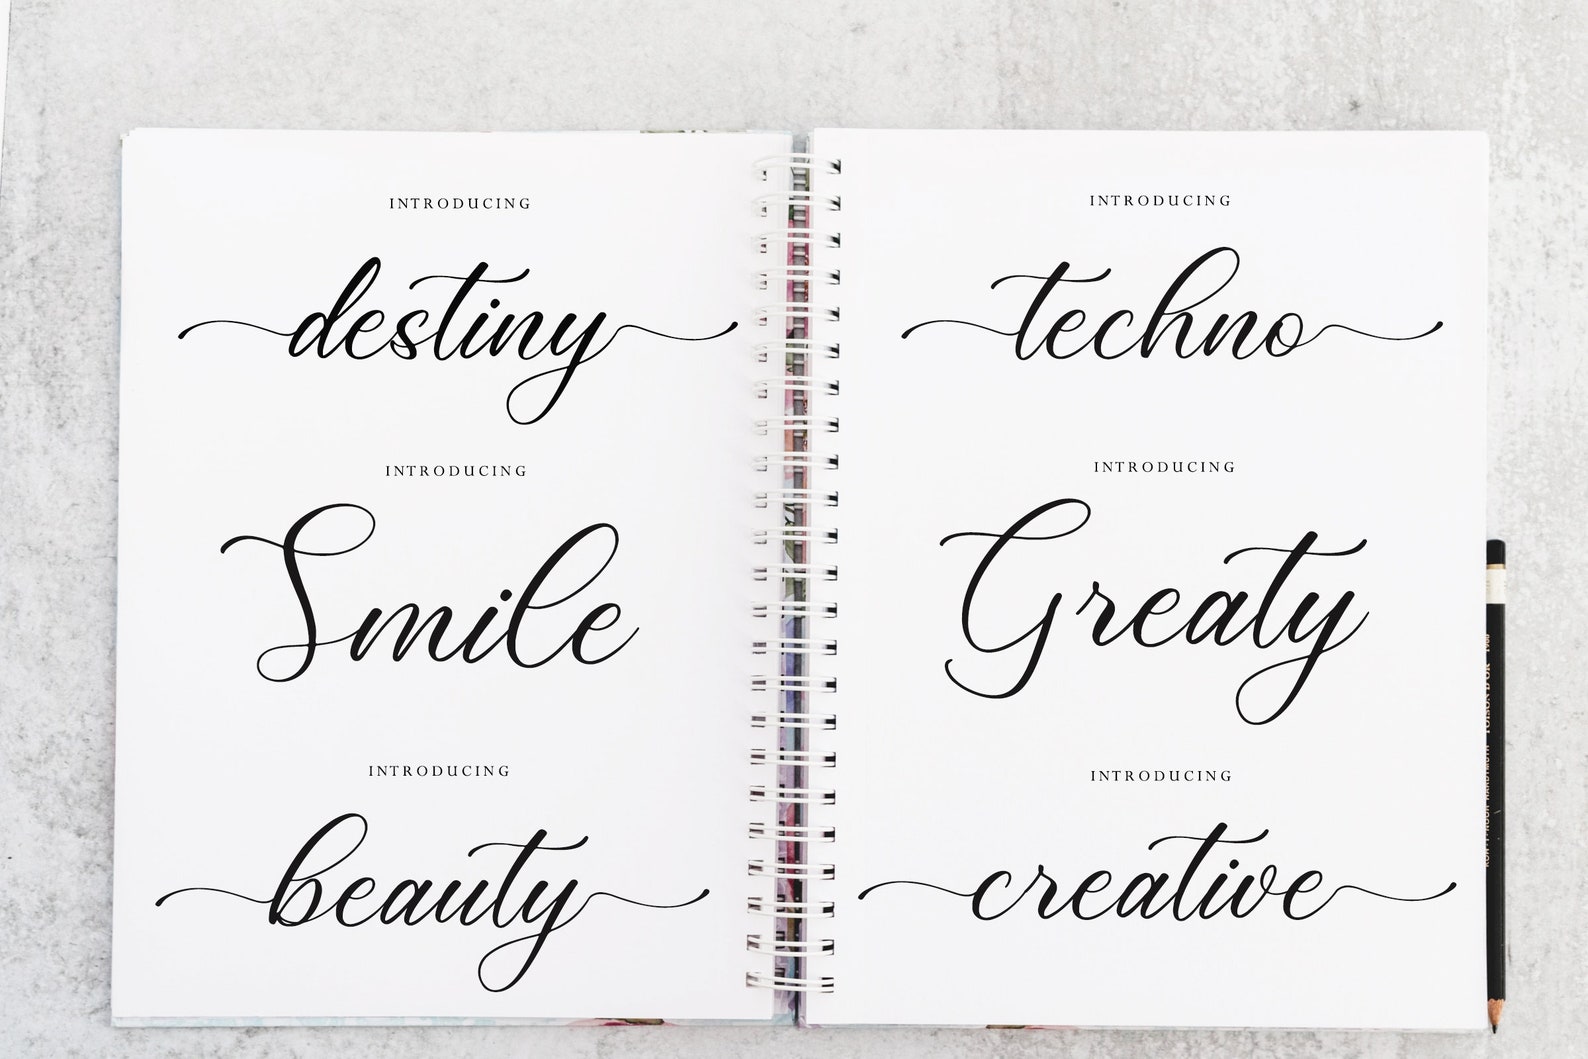 INTRODUCING
destiny
INTRODUCING
Smile
INTRODUCING
beauty
INTRODUCING
techno
INTRODUCING
Greaty
INTRODUCING
creative
TOISON D'OR 1900
KOH-I-NOOR HARDTMUTH